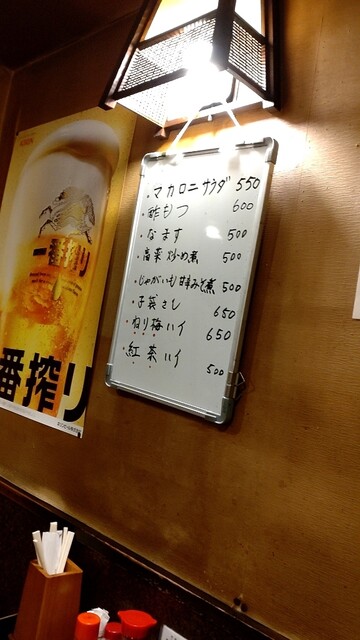 KIRIN
一番搾り
番搾り
・マカロニサラダ 550
・酢もつ 600
・なます 500
・高菜炒め煮 500
・じゃがいも甘辛みそ煮 500
・子袋さし 650
・ねり梅ハイ 650
・紅茶ハイ 500